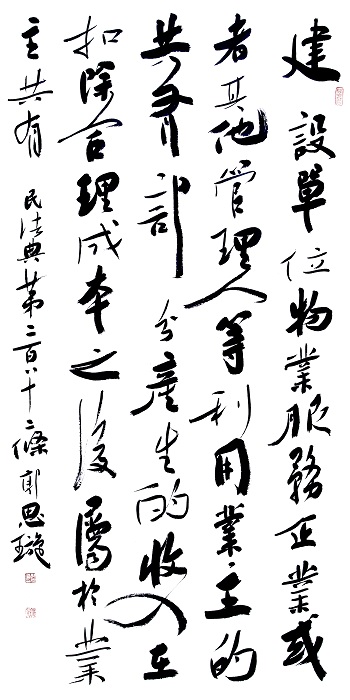 建設單位物業服務企業或
者其他管理人等利用業主的
共有部分產生的收入在
扣除合理成本之後屬於業
主共有
民法典第二百八十二條 郭思璇